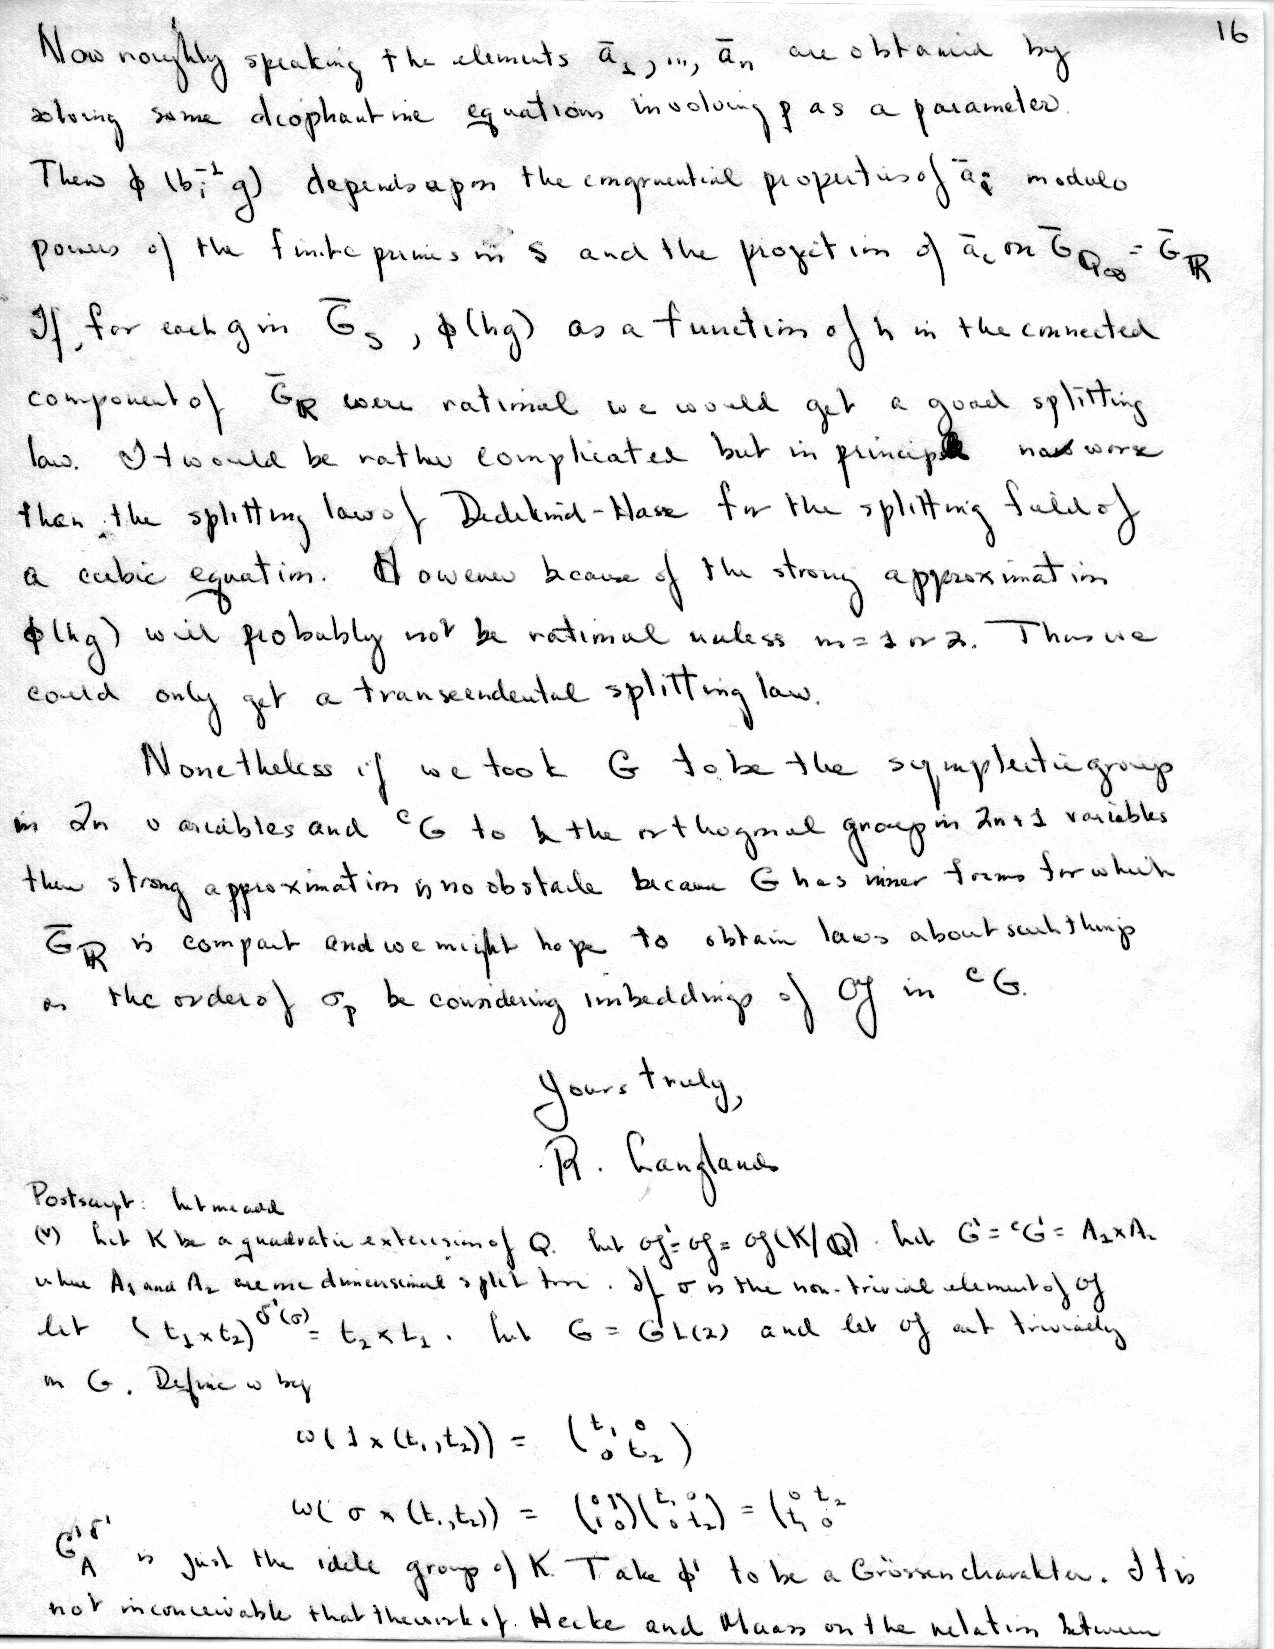 16
Now roughly speaking the elements ā₁, ..., āₙ are obtained by
solving some diophantine equations involving p as a parameter.
Then φ(bᵢ⁻¹g) depends upon the congruential properties of āᵢ modulo
powers of the finite primes in S and the projection of āᵢ on Ḡ_{Q∞} = Ḡ_ℝ
If, for each g in Ḡ_S, φ(hg) as a function of h in the connected
component of Ḡ_ℝ were rational we would get a good splitting
law. It would be rather complicated but in principle no worse
than the splitting law of Dedekind-Hasse for the splitting field of
a cubic equation. However because of the strong approximation
φ(hg) will probably not be rational unless m = 1 or 2. Thus we
could only get a transcendental splitting law.
Nonetheless if we took G to be the symplectic group
in 2n variables and ᶜG to be the orthogonal group in 2n+1 variables
then strong approximation is no obstacle because G has inner forms for which
Ḡ_ℝ is compact and we might hope to obtain laws about such things
as the order of σ_p be considering imbeddings of 𝔤 in ᶜG.
Yours truly,
R. Langlands
Postscript: Let me add
(v) Let K be a quadratic extension of Q. Let 𝔤' = 𝔤 = 𝔤(K/Q). Let G' = ᶜG' = A₁×A₂
where A₁ and A₂ are one dimensional split tori. If σ is the non-trivial element of 𝔤
let (t₁×t₂)^{δ'(σ)} = t₂×t₁. Let G = GL(2) and let 𝔤 act trivially
on G. Define ω by
ω(1×(t₁,t₂)) = (t₁ 0 / 0 t₂)
ω(σ×(t₁,t₂)) = (0 1 / 1 0)(t₁ 0 / 0 t₂) = (0 t₂ / t₁ 0
G'^{δ'}_A is just the idèle group of K. Take φ' to be a Grössencharakter. It is
not inconceivable that the work of Hecke and Maass on the relation between